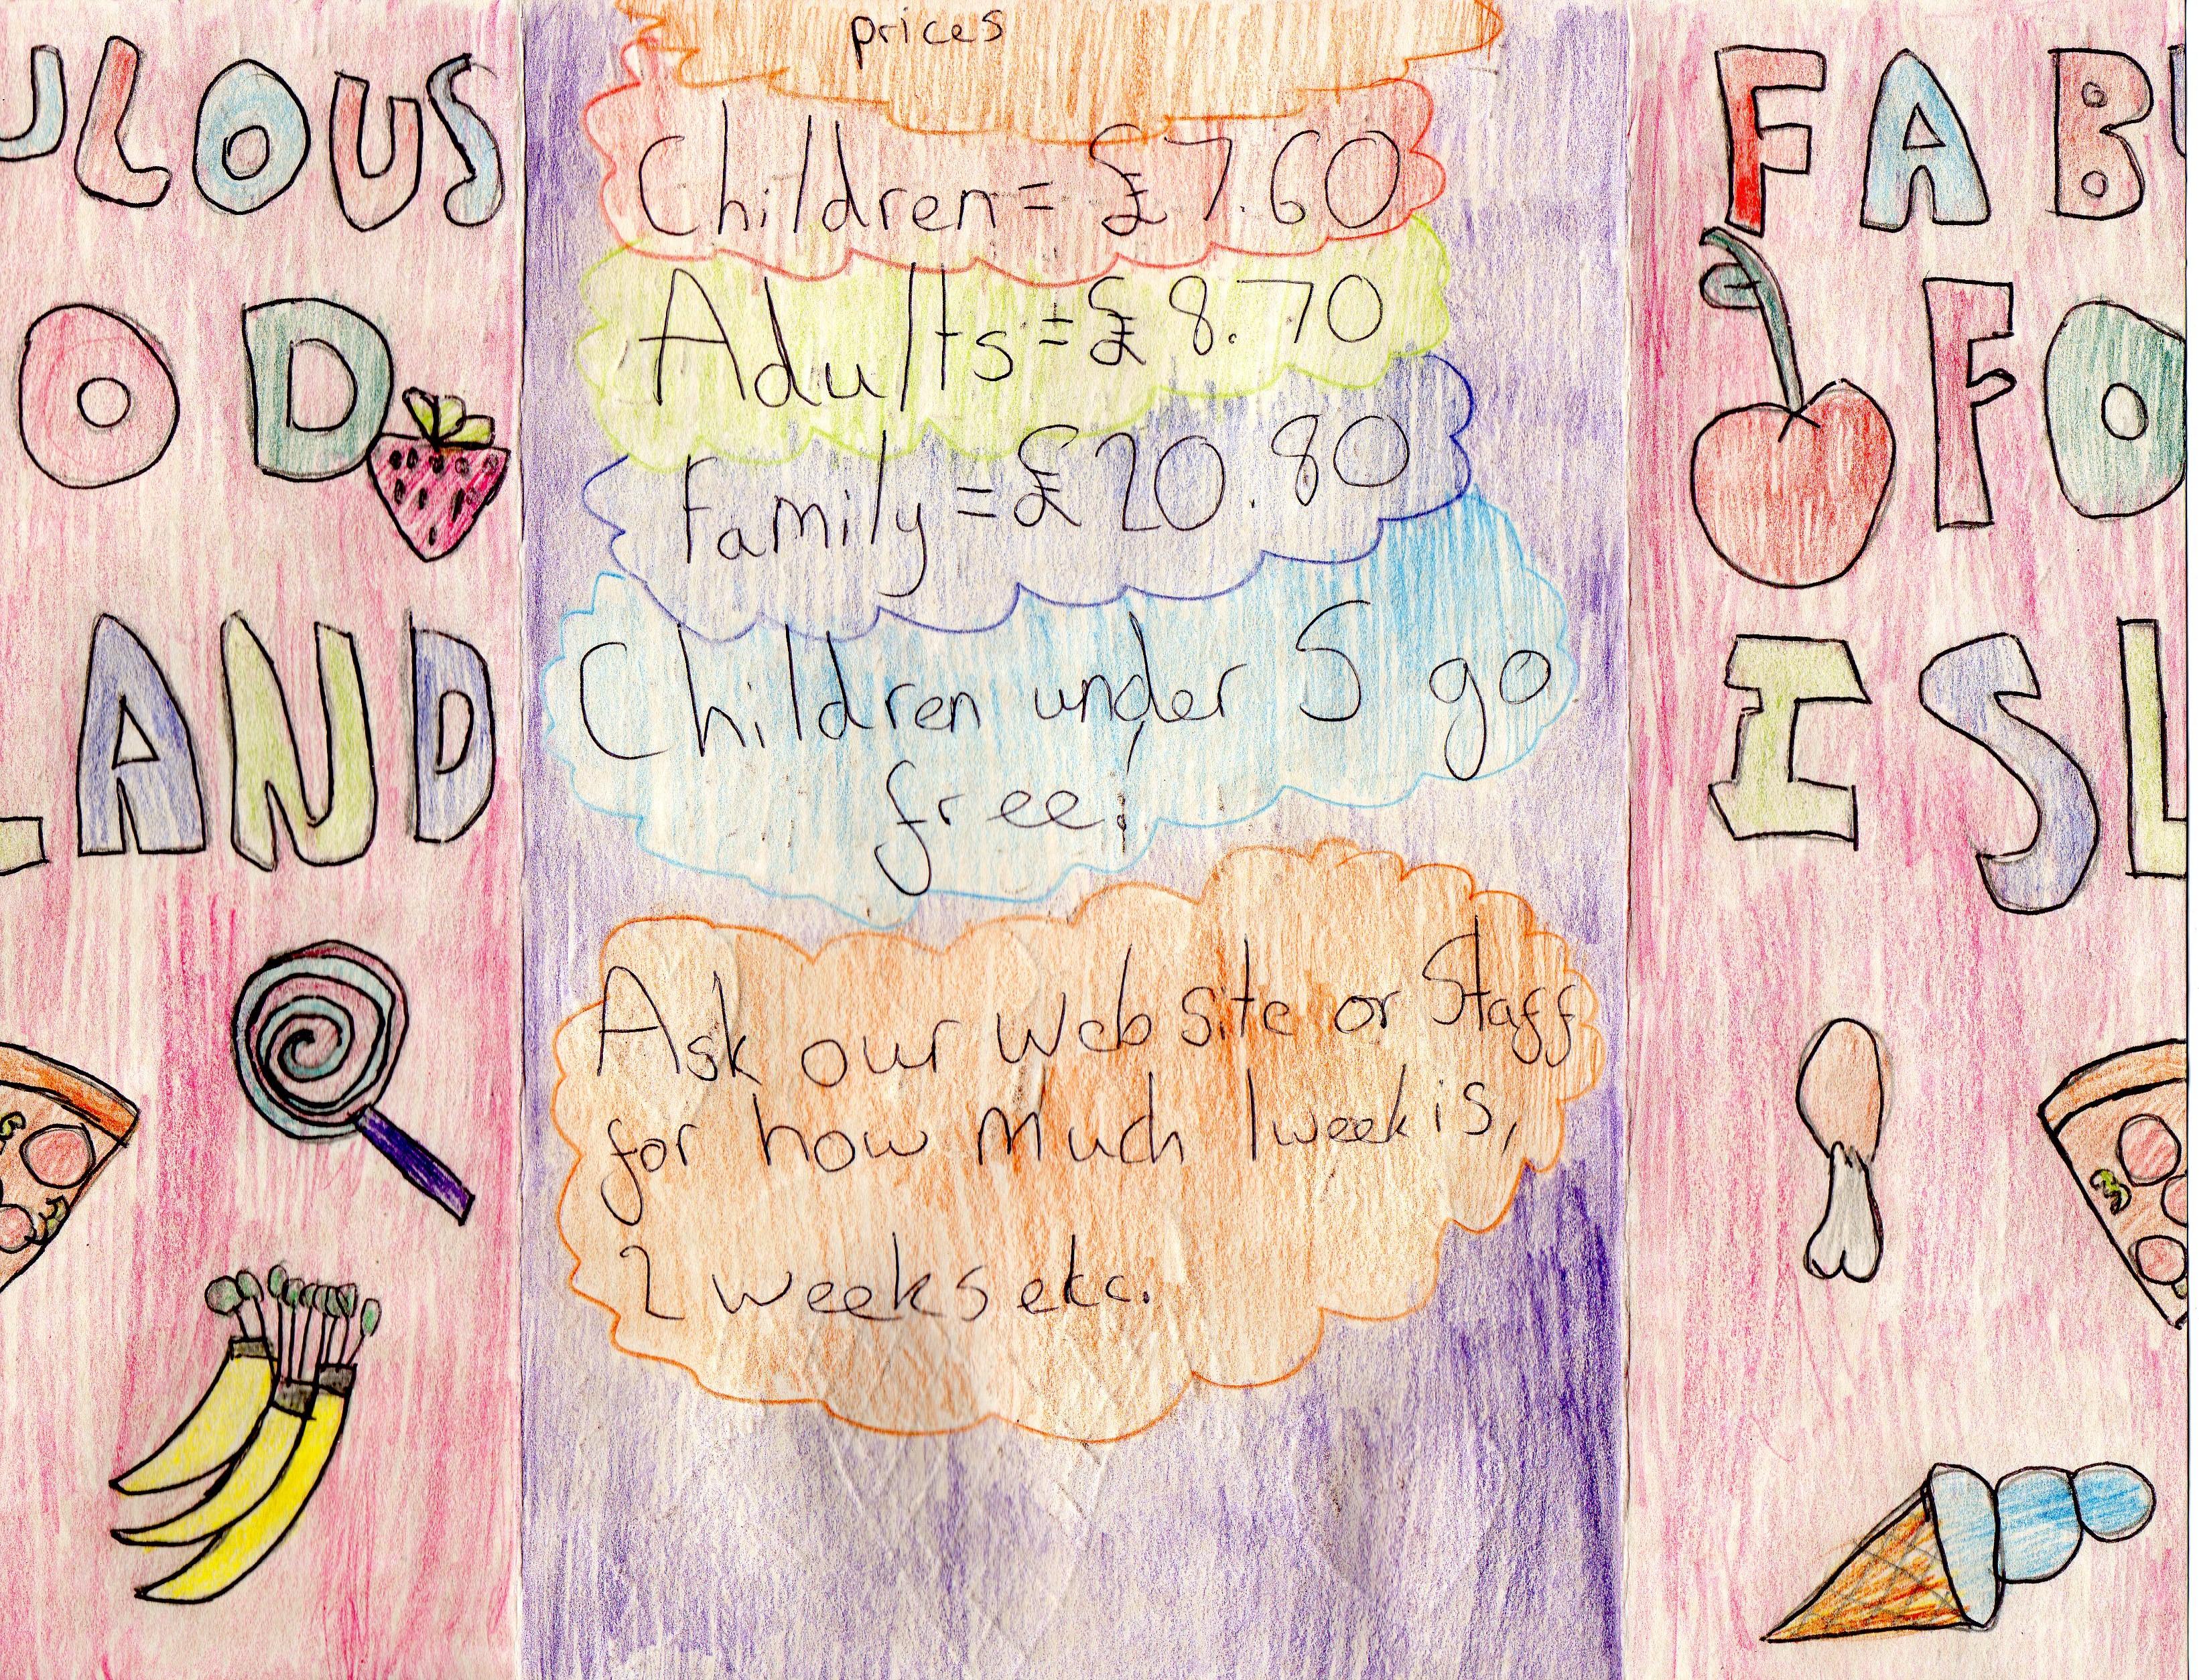 ULOUS
OD
LAND
prices
Children = £7.60
Adults = £8.70
Family = £20.80
Children under 5 go
free!
Ask our web site or Staff
for how much 1 week is,
2 weeks etc.
FABU
FO
ISL